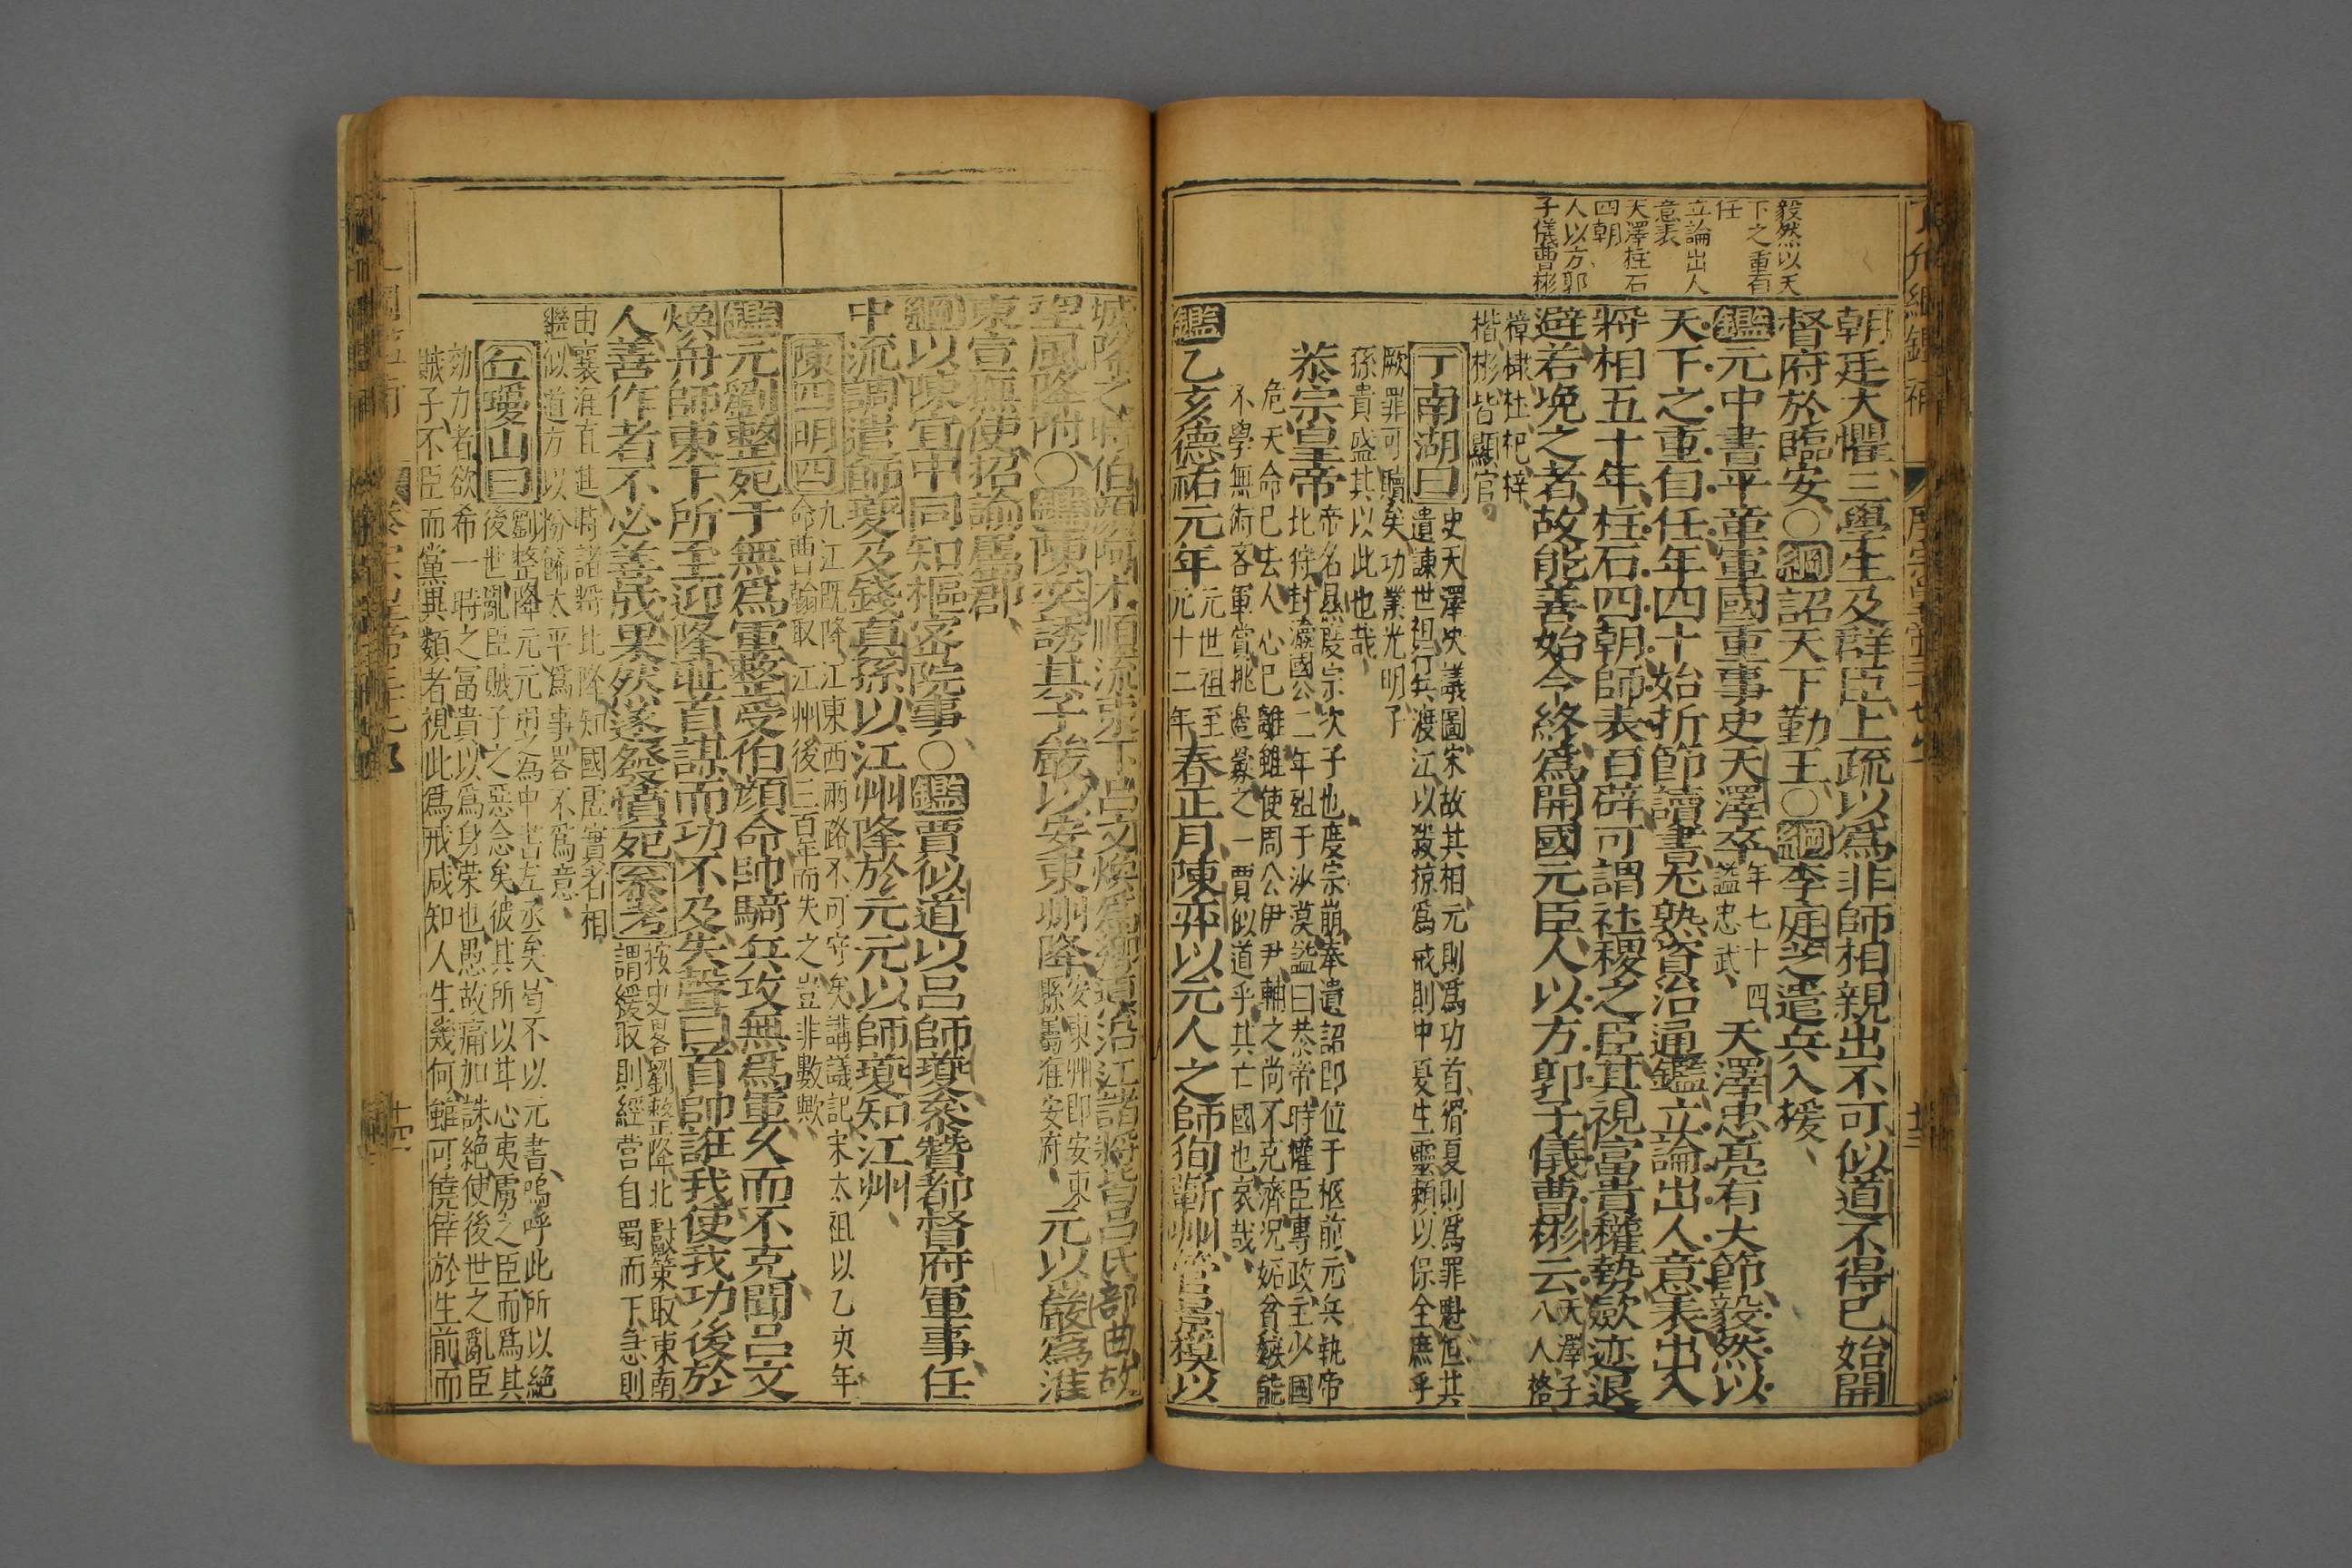 毅然以天
下之重自
任
立論出人
意表
天澤柱石
四朝
人以方郭
子儀曹彬
朝廷大懼三學生及群臣上疏以爲非師相親出不可似道不得已始開
督府於臨安〇綱詔天下勤王〇綱李庭芝遣兵入援
鑑元中書平章軍國重事史天澤卒年七十四
謚忠武天澤忠亮有大節毅然以
天下之重自任年四十始折節讀書尤熟資治通鑑立論出人意表出入
將相五十年柱石四朝師表百辟可謂社稷之臣其視富貴權勢歛迹退
避若浼之者故能善始令終爲開國元臣人以方郭子儀曹彬云天澤子
八人格
樟棣杜杞梓
楷彬皆顯官
丁南湖曰史天澤決議圖宋故其相元則爲功首猾夏則爲罪魁但其
遺諫世祖行兵渡江以殺掠爲戒則中夏生靈頼以保全庶乎
厥罪可贖矣功業光明子
孫貴盛其以此也哉
恭宗皇帝帝名㬎度宗次子也度宗崩奉遺詔即位于柩前元兵執帝
北狩封瀛國公二年殂于沙漠謚曰恭帝時權臣專政主少國
危天命已去人心已離雖使周公伊尹輔之尚不克濟況妬賢嫉能
不學無術客軍賞挑邊釁之一賈似道乎其亡國也哀哉
鑑乙亥德祐元年元世祖至
元十二年春正月陳弈以元人之師狥蘄州管景模以
城降之時伯顔阿术順流東下呂文煥爲鄉道沿江諸將皆呂氏部曲故
望風降附〇鑑陳奕誘其子巖以安東州降安東州即安東
縣屬淮安府元以巖爲淮
東宣撫使招諭屬郡
綱以陳宜中同知樞密院事〇鑑賈似道以呂師夔叅贊都督府軍事任
中流調遣師夔及錢真孫以江州降於元元以師夔知江州
陳四明四九江既降江東西兩路不可守矣講議記宋太祖以乙亥年
命曹翰取江州後三百年而失之豈非數歟
鑑元劉整死于無爲軍整受伯顔命帥騎兵攻無爲軍久而不克聞呂文
煥舟師東下所至迎降耻首謀而功不及失聲曰首帥誑我使我功後於
人善作者不必善成果然遂發憤死叅考按史畧劉整降北獻策取東南
謂緩取則經營自蜀而下急則
由襄淮直進時諸將比降知國虛實者相
繼似道方以粉飾太平爲事畧不爲意
丘瓊山曰劉整降元元用之為中書左丞矣茍不以元書嗚呼此所以絕
後世亂臣賊子之惡念矣彼其所以甘心夷虜之臣而爲其
効力者欲希一時之富貴以爲身榮也愚故痛加誅絕使後世之亂臣
賊子不臣而黨異類者視此爲戒咸知人生幾何雖可僥倖於生前而